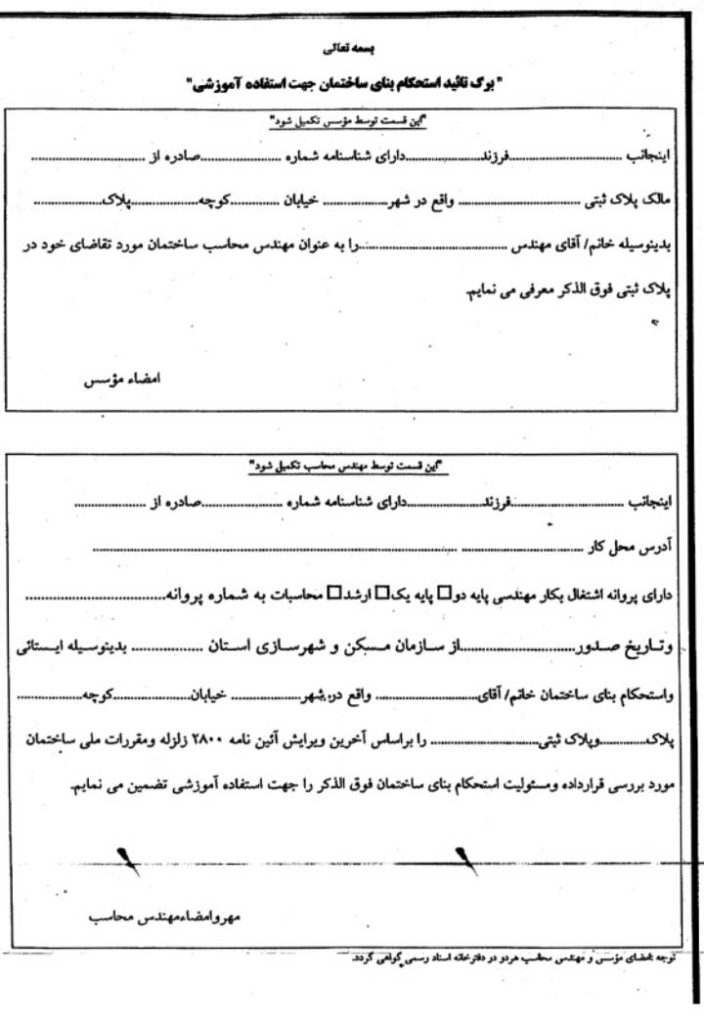 بسمه تعالی
" برگ تائید استحکام بنای ساختمان جهت استفاده آموزشی"
"این قسمت توسط مؤسس تکمیل شود"
اینجانب ..............................فرزند.....................دارای شناسنامه شماره .....................صادره از ..............................
مالک پلاک ثبتی ................................ واقع در شهر................. خیابان .............کوچه.................پلاک..................
بدینوسیله خانم/ آقای مهندس ................................................را به عنوان مهندس محاسب ساختمان مورد تقاضای خود در
پلاک ثبتی فوق الذکر معرفی می نمایم.
امضاء مؤسس
"این قسمت توسط مهندس محاسب تکمیل شود"
اینجانب ..............................فرزند.....................دارای شناسنامه شماره .....................صادره از ...................
آدرس محل کار ................................ ................................................................................................
دارای پروانه اشتغال بکار مهندسی پایه دو□ پایه یک□ ارشد□ محاسبات به شماره پروانه....................................
وتاریخ صدور..............................از سازمان مسکن و شهرسازی استان .................. بدینوسیله ایستائی
واستحکام بنای ساختمان خانم/ آقای........................... واقع در شهر.................. خیابان...................کوچه.................
پلاک.............وپلاک ثبتی............................. را براساس آخرین ویرایش آئین نامه ۲۸۰۰ زلزله ومقررات ملی ساختمان
مورد بررسی قرارداده ومسئولیت استحکام بنای ساختمان فوق الذکر را جهت استفاده آموزشی تضمین می نمایم.
مهروامضاءمهندس محاسب
توجه :امضای مؤسس و مهندس محاسب هردو در دفترخانه اسناد رسمی گواهی گردد.